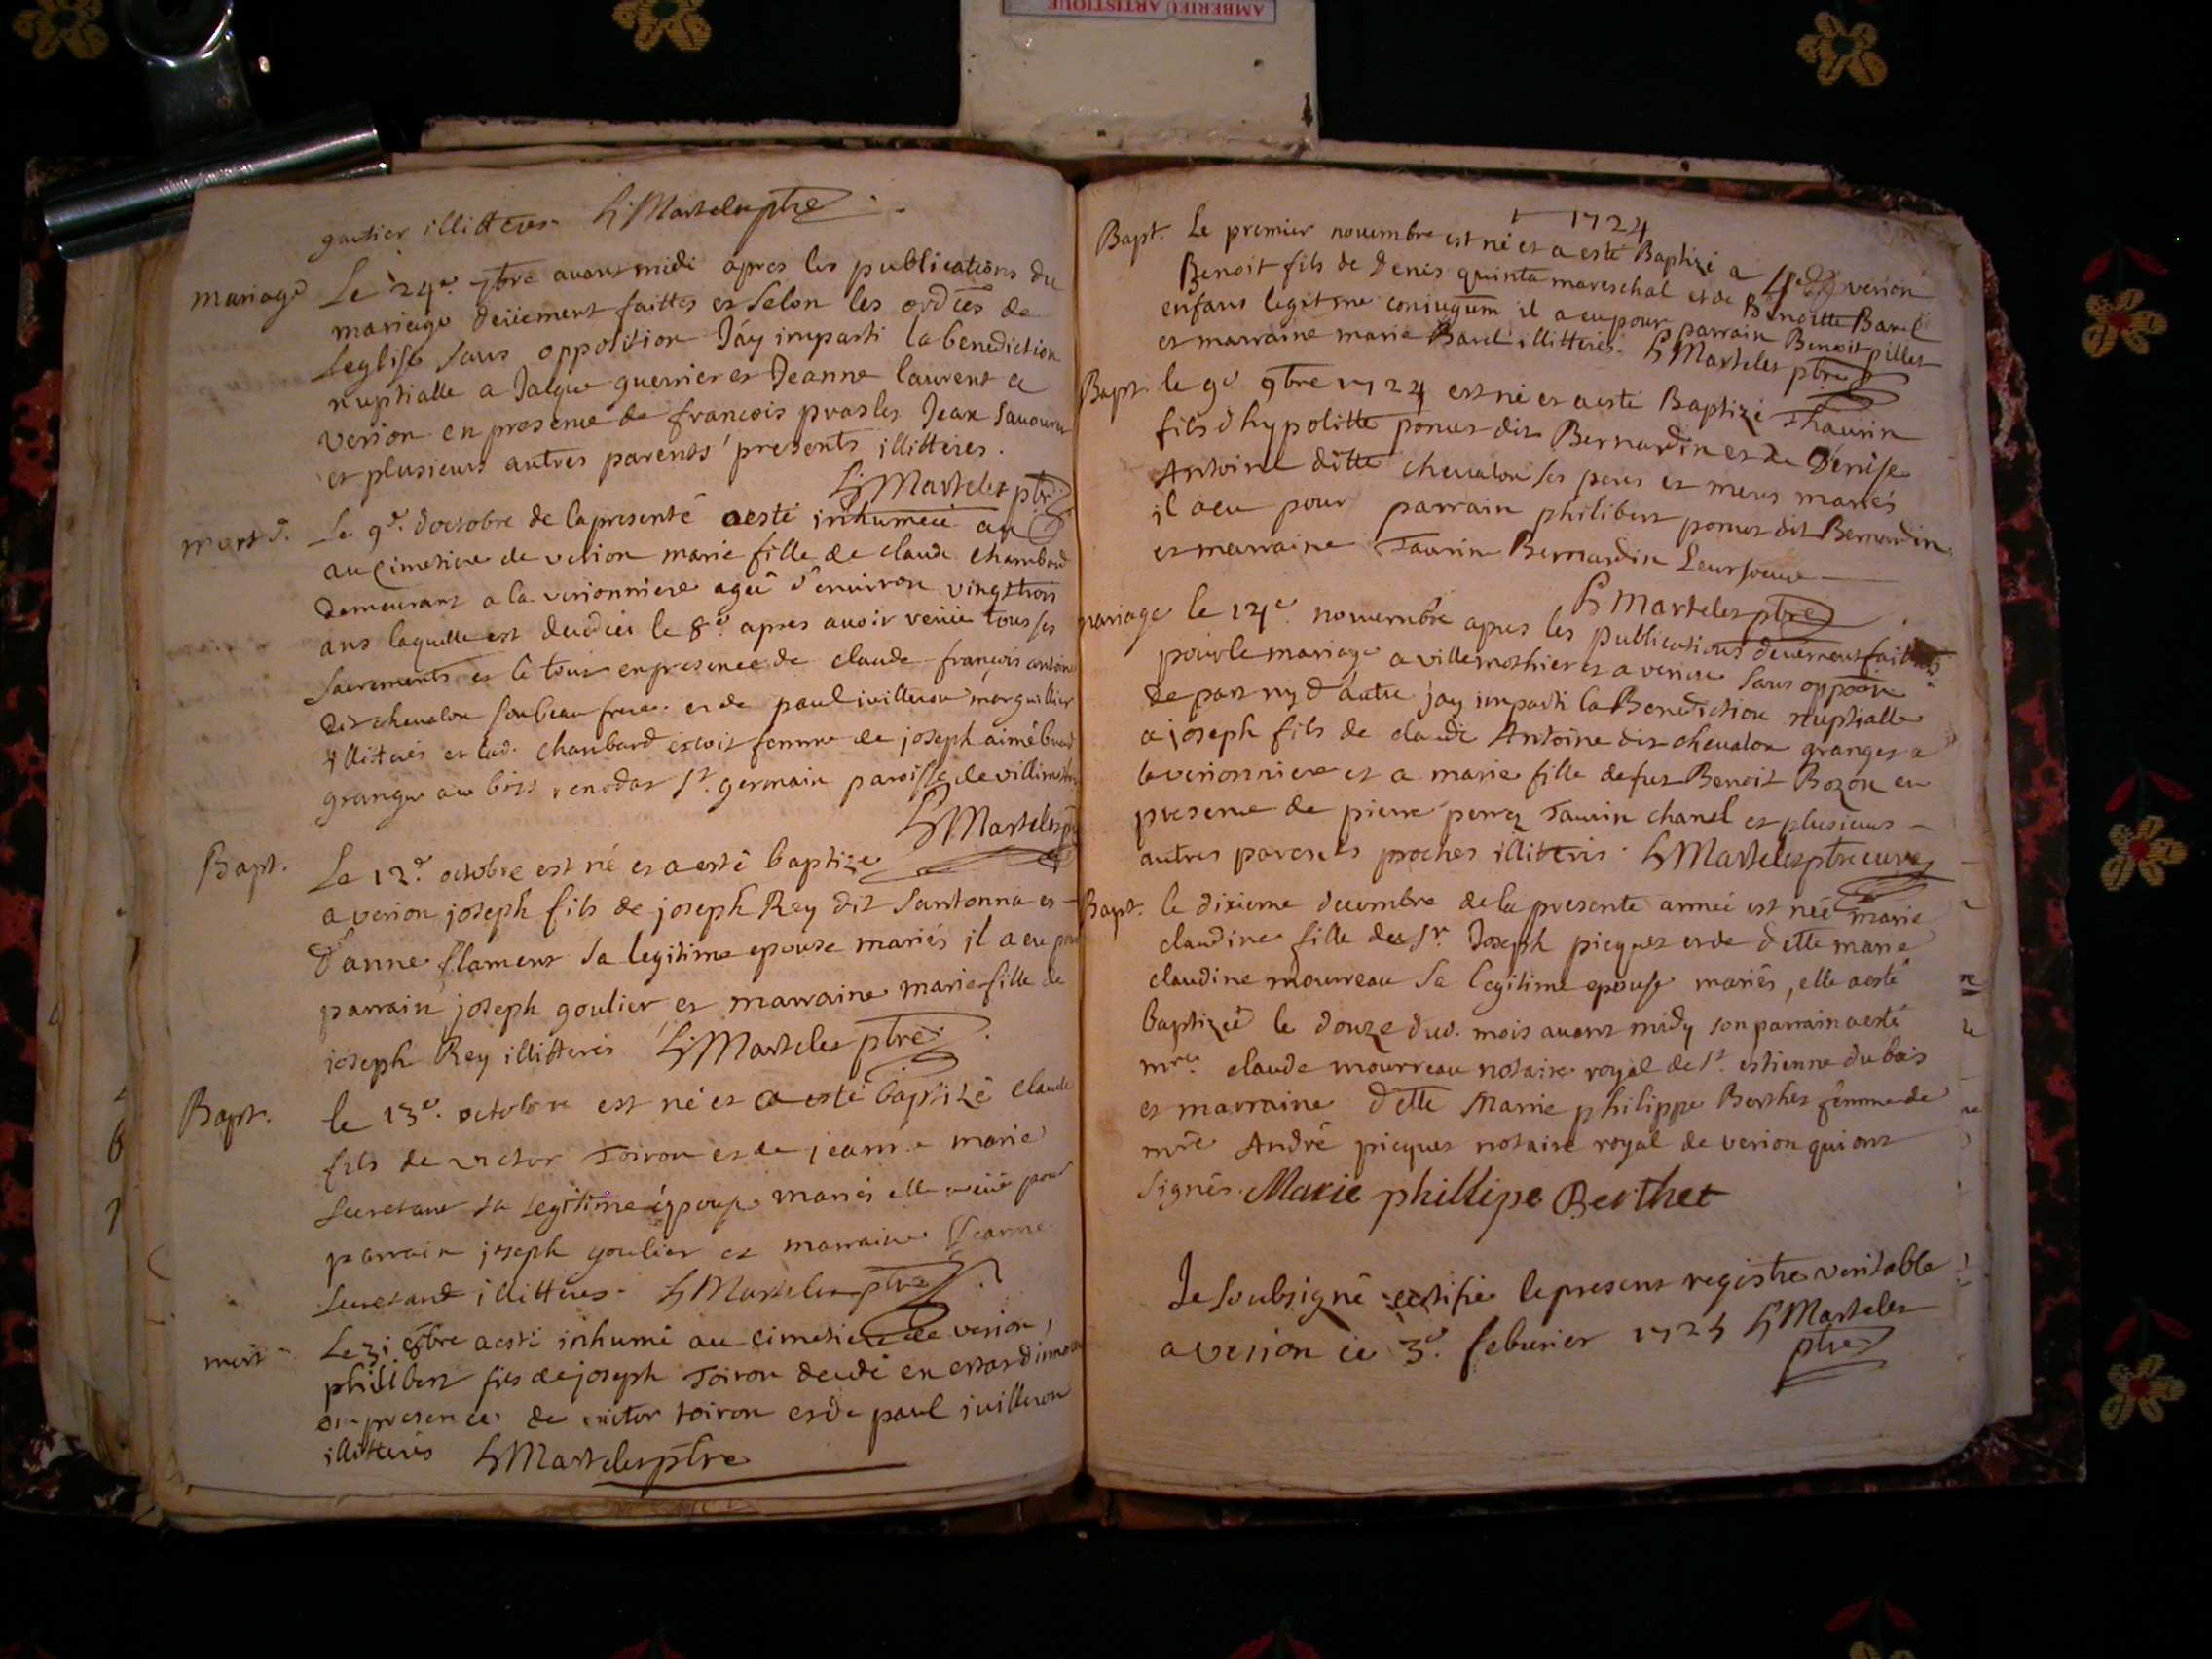 AMBERIEU ARTISTIQUE
gautier illitteres. h Marteles ptre
mariage Le 24e. 7bre avant midi apres les publications du
mariage deüement faittes et selon les ordres de
leglise sans opposition Jáy imparti la benediction
nuptialle a Jaque guerrier et Jeanne laurent a
verion en presence de francois prasles Jean
et plusieurs autres parents presents illitteres.
h Marteles ptre
mort Le 9e. doctobre de la presente a esté inhumeé au
au cimetiere de verion marie fille de claude chambard
demeurant a la verionniere ageé d'environ vingt trois
ans laquelle est decedeé le 8e. apres avoir reciie tous ses
sacrements et le tout en presence de claude françois antoine
dit chevalon son beau frere et de paul juilleron marguillier
illiterés et lad. chambard estoit femme de joseph aimé
granger au bois st. germain paroisse de
h Marteles
Bapt. Le 12e. octobre est né et a esté baptize
a verion joseph fils de joseph Rey dit Santonna et
d'anne flament sa legitime epouse mariés il a eu pour
parrain joseph goulier et marraine marie fille de
joseph Rey illitterés h Marteles ptre
Bapt. le 13e. octobre est né et a esté baptizé claude
fils de victor Toiron et de jeanne marie
sa legitime epouse mariés elle a eüe pour
parrain joseph goulier et marraine Jeanne
illitteres. h Marteles ptre
mort Le 31 8bre a esté inhumé au cimetiere de verion,
philibert fils de joseph Toiron decedé
en presence de victor toiron et de paul juilleron
illitterés h Marteles ptre
1724
Bapt. Le premier novembre est né et a esté Baptizé a verion
Benoit fils de Denis quinta mareschal et de Benoitte Barel
enfans legitme conjugum il a eu pour parrain Benoit pillet
et marraine marie Barel illitteres. h Marteles ptre
Bapt. le 9e 9bre 1724 est né et a esté Baptizé Thaurin
fils d'hypolitte ponus dit Bernardin et de Denise
Antoine ditte chevalon ses peres et meres mariés
il a eu pour parrain philibert ponus dit Bernardin
et marraine Taurin Bernardin leur soeur
h Marteles ptre
mariage le 14e. novembre apres les publications deuement faittes
pour le mariage a villemothier et a verion sans oppoon
de part ny d'autre jay imparti la Benediction nuptialle
a joseph fils de claude Antoine dit chevalon granger a
la verionniere et a marie fille de fut Benoit Bozon en
presence de pierre perrez Taurin chanel et plusieurs
autres parents proches illitteris. h Marteles ptre curé
Bapt. le dixieme decembre de la presente anneé est néé marie
claudine fille de sr. Joseph picquet et de dette marie
claudine mourreau sa legitime epouse mariés, elle a esté
baptizeé le douze dud. mois avant midy son parrain a esté
mre. claude mourreau notaire royal de st. estienne du bois
et marraine dette Marie philippe Berthet femme de
mre André picquet notaire royal de verion qui ont
signés. Marie phillipe Berthet
Je soubsigné certifie le present registre veritable
a verion ce 3e. febvrier 1725 h Marteles
ptre